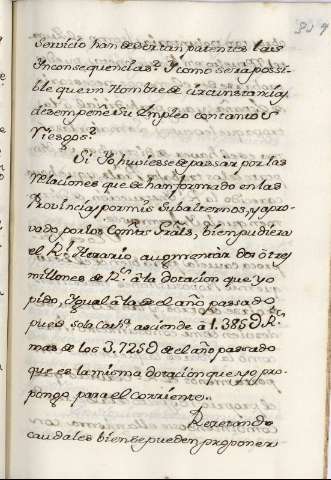 Servicio han de ser tan patentes las
Ynconsequencias? Y como sera possi-
ble que un Hombre de circunstancias,
desempeñe un Empleo con tantos
Riesgos?
Si Yo huviesse de passar por las
relaciones que se han formado en las
Provincias por mis Subalternos, y apro-
vado por los Comres Grals, bien pudiera
el Rl Herario augmentar dos ò tres
millones de Rs à la dotacion que yo
pido, Ygual à la de el año passado
pues sola Cathª asciende à 1.385 D Rs
mas de los 3.725 D de el año passado
que es la misma dotacion que yo pro-
pongo para el Corriente.
caudales bien se pueden proponer